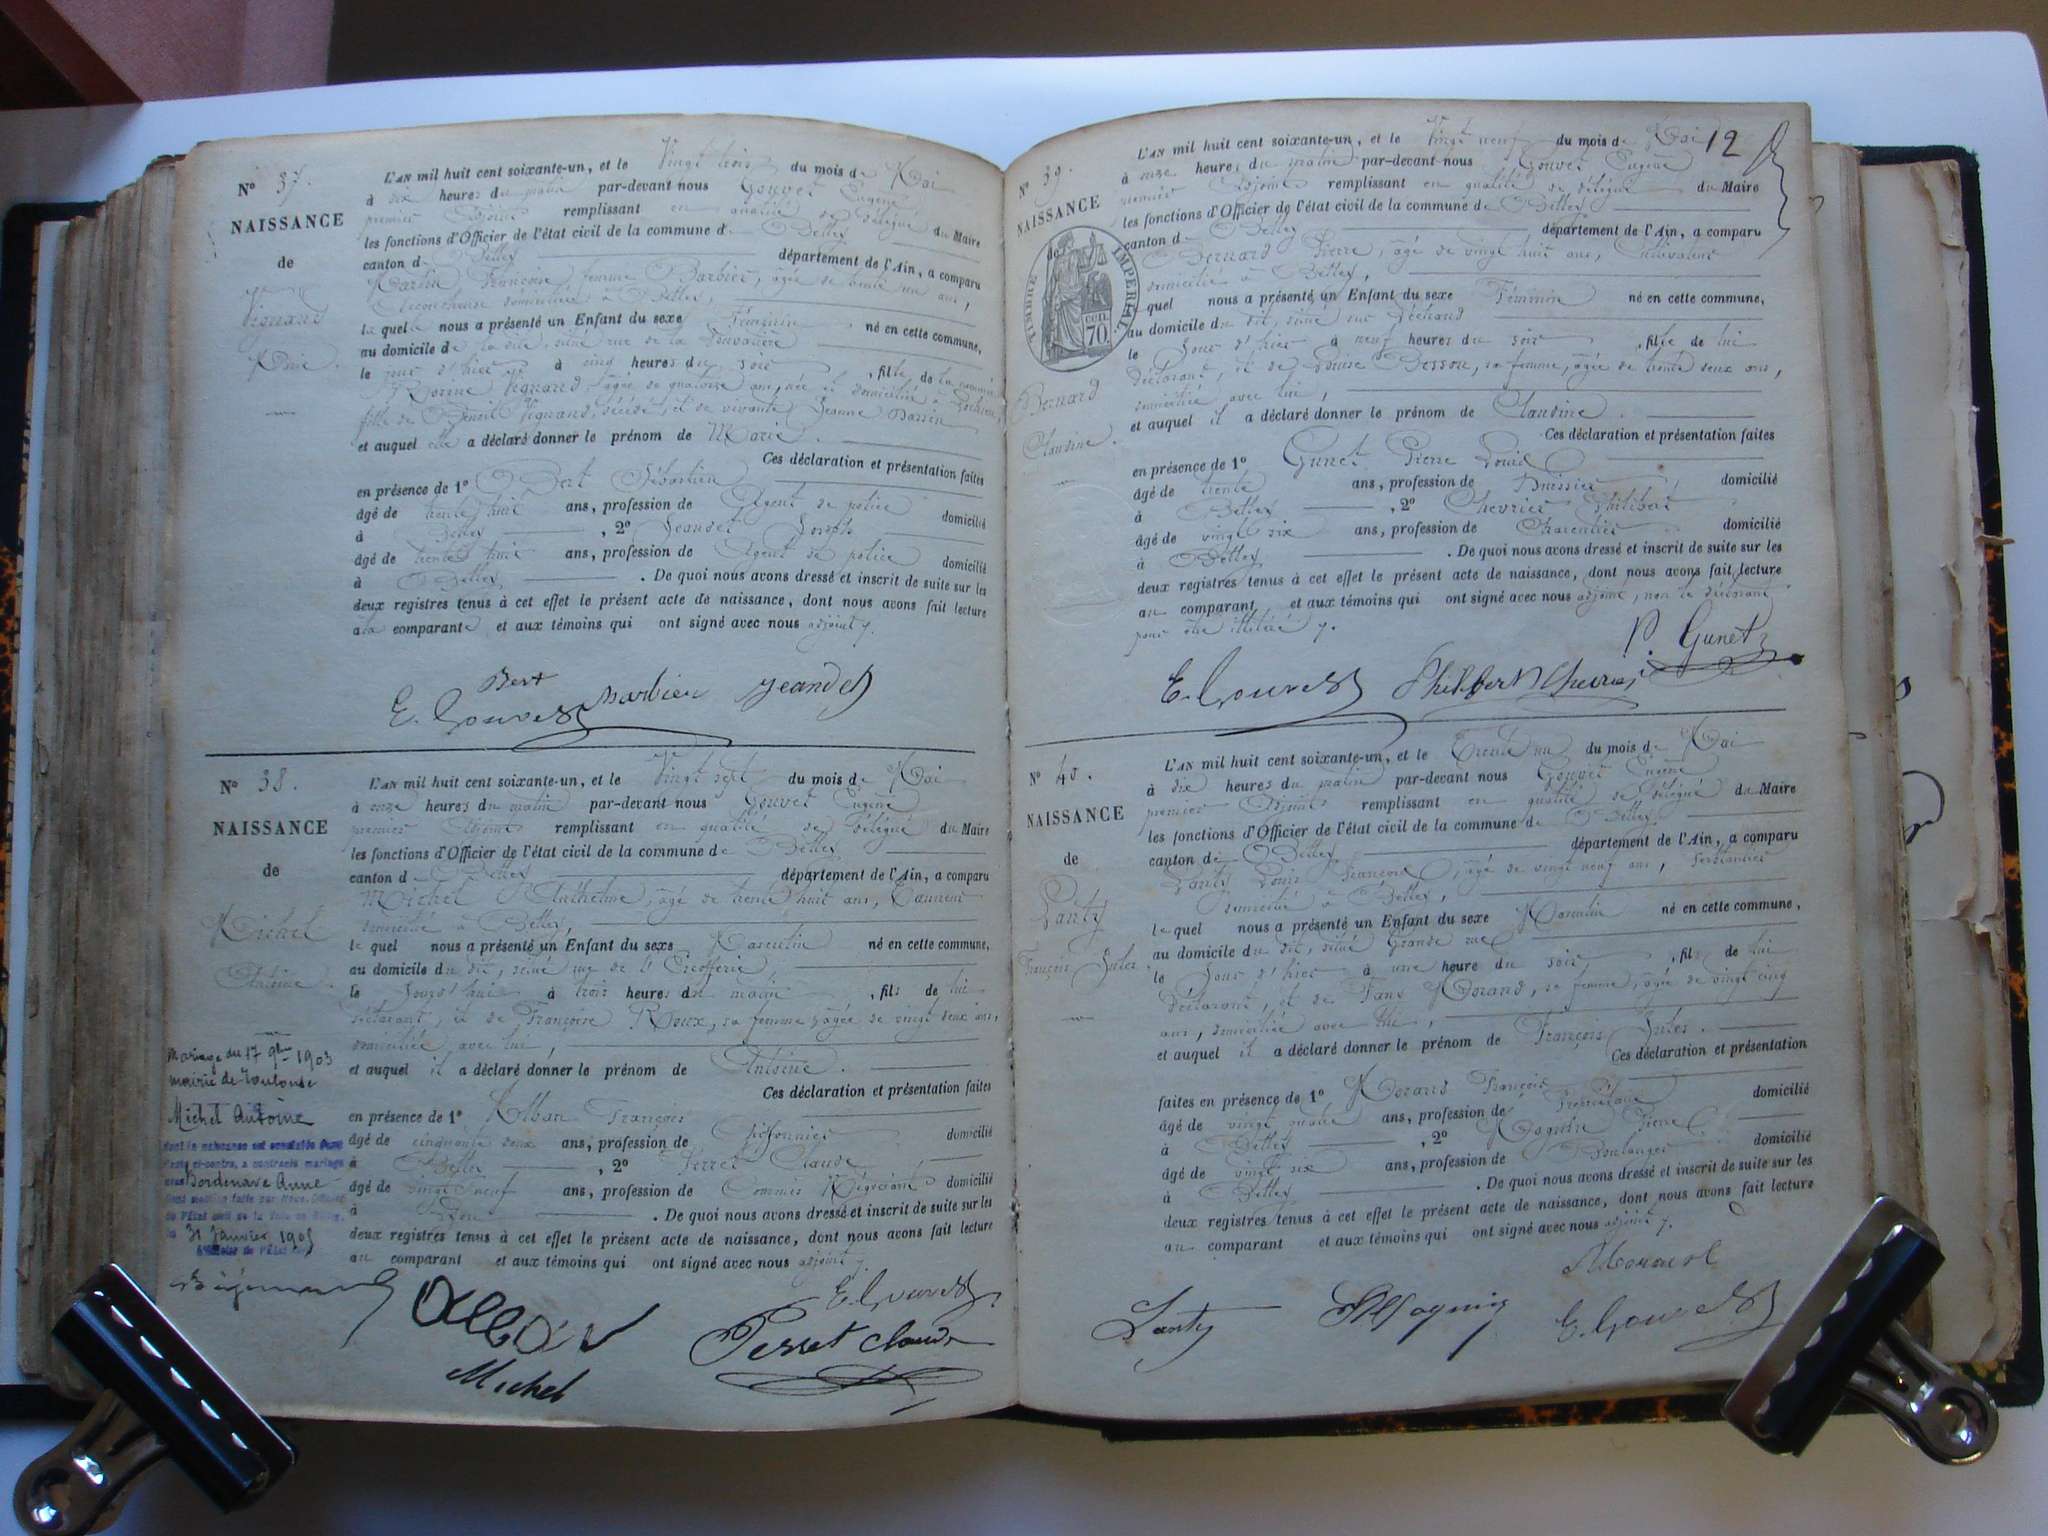 N° 37.
NAISSANCE
de
Vignand
Marie.
L'AN mil huit cent soixante-un, et le Vingt trois du mois de Mai
à dix heures du matin par-devant nous Gouvet Eugène
premier Adjoint remplissant en qualité de délégué du Maire
les fonctions d'Officier de l'état civil de la commune de Belley
canton de Belley département de l'Ain, a comparu
Martin Françoise femme Barbier, âgée de trente un ans,
Accoucheuse domiciliée à Belley,
laquelle nous a présenté un Enfant du sexe Féminin né en cette commune,
au domicile de la dite, situé rue de la
le jour d'hier à cinq heures du soir, fille de la nommée
Vignand, âgée de quatorze ans, née et domiciliée à
fille de Benoit Vignand, décédé, et de vivante Jeanne
et auquel elle a déclaré donner le prénom de Marie.
Ces déclaration et présentation faites
en présence de 1° Bert Sébastien
âgé de trente huit ans, profession de Agent de police domicilié
à Belley, 2° Jeandet Joseph
âgé de trente huit ans, profession de Agent de police domicilié
à Belley. De quoi nous avons dressé et inscrit de suite sur les
deux registres tenus à cet effet le présent acte de naissance, dont nous avons fait lecture
à la comparante et aux témoins qui ont signé avec nous adjoint
Bert
E. Gouvet Barbier Jeandet
N° 38.
NAISSANCE
de
Michel
Antoine.
L'AN mil huit cent soixante-un, et le Vingt sept du mois de Mai
à onze heures du matin par-devant nous Gouvet Eugène
premier Adjoint remplissant en qualité de délégué du Maire
les fonctions d'Officier de l'état civil de la commune de Belley
canton de Belley département de l'Ain, a comparu
Michel Anthelme, âgé de trente huit ans, Tanneur
domicilié à Belley,
lequel nous a présenté un Enfant du sexe Masculin né en cette commune,
au domicile du dit, situé rue de l'Escofferie,
le Jourd'hui à trois heures du matin, fils de lui
déclarant, et de Françoise Roux, sa femme, âgée de vingt deux ans,
domiciliée avec lui,
et auquel il a déclaré donner le prénom de Antoine.
Ces déclaration et présentation faites
en présence de 1° Alban François
âgé de cinquante deux ans, profession de Chiffonnier domicilié
à Belley, 2° Perret Claude
âgé de vingt neuf ans, profession de Commis Négociant domicilié
à Lyon. De quoi nous avons dressé et inscrit de suite sur les
deux registres tenus à cet effet le présent acte de naissance, dont nous avons fait lecture
au comparant et aux témoins qui ont signé avec nous adjoint
Mariage du 17 9bre 1903
mairie de Toulouse
Michel Antoine
dont la naissance est constatée dans
l'acte ci-contre, a contracté mariage
avec Bordenave Anne
le 31 Janvier 1905
E. Gouvet
Alban
Perret Claude
Michel
12
N° 39.
NAISSANCE
de
TIMBRE IMPERIAL
70
Bernard
Claudine.
L'AN mil huit cent soixante-un, et le Vingt neuf du mois de Mai
à onze heures du matin par-devant nous Gouvet Eugène
premier Adjoint remplissant en qualité de délégué du Maire
les fonctions d'Officier de l'état civil de la commune de Belley
canton de Belley département de l'Ain, a comparu
Bernard Pierre, âgé de vingt huit ans, Cultivateur
domicilié à Belley,
lequel nous a présenté un Enfant du sexe Féminin né en cette commune,
au domicile du dit, situé rue
le Jour d'hier à neuf heures du soir, fille de lui
déclarant, et de Louise Besson, sa femme, âgée de trente deux ans,
domiciliée avec lui,
et auquel il a déclaré donner le prénom de Claudine.
Ces déclaration et présentation faites
en présence de 1° Gunet Pierre Louis
âgé de trente ans, profession de Huissier domicilié
à Belley, 2° Chevrier Philibert
âgé de vingt six ans, profession de Charcutier domicilié
à Belley. De quoi nous avons dressé et inscrit de suite sur les
deux registres tenus à cet effet le présent acte de naissance, dont nous avons fait lecture
au comparant, et aux témoins qui ont signé avec nous adjoint, non le déclarant
pour être illitéré
P. Gunet
E. Gouvet Philibert Chevrier
N° 40.
NAISSANCE
de
Lanty
François Jules.
L'AN mil huit cent soixante-un, et le Trente un du mois de Mai
à dix heures du matin par-devant nous Gouvet Eugène
premier Adjoint remplissant en qualité de délégué du Maire
les fonctions d'Officier de l'état civil de la commune de Belley
canton de Belley département de l'Ain, a comparu
Lanty Louis François, âgé de vingt neuf ans, Ferblantier
domicilié à Belley,
lequel nous a présenté un Enfant du sexe Masculin né en cette commune,
au domicile du dit, situé Grande rue
le Jour d'hier à une heure du soir, fils de lui
déclarant, et de Fany Morand, sa femme, âgée de vingt cinq
ans, domiciliée avec lui,
et auquel il a déclaré donner le prénom de François Jules.
Ces déclaration et présentation
faites en présence de 1° Morand François
âgé de vingt quatre ans, profession de domicilié
à Belley, 2° Magnin Pierre
âgé de vingt six ans, profession de Boulanger domicilié
à Belley. De quoi nous avons dressé et inscrit de suite sur les
deux registres tenus à cet effet le présent acte de naissance, dont nous avons fait lecture
au comparant et aux témoins qui ont signé avec nous adjoint
Morand
Lanty Magnin E. Gouvet